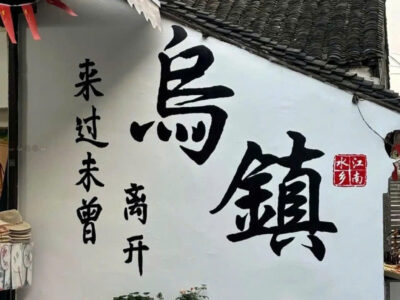 烏鎮
来过未曾
离开
江南
水乡